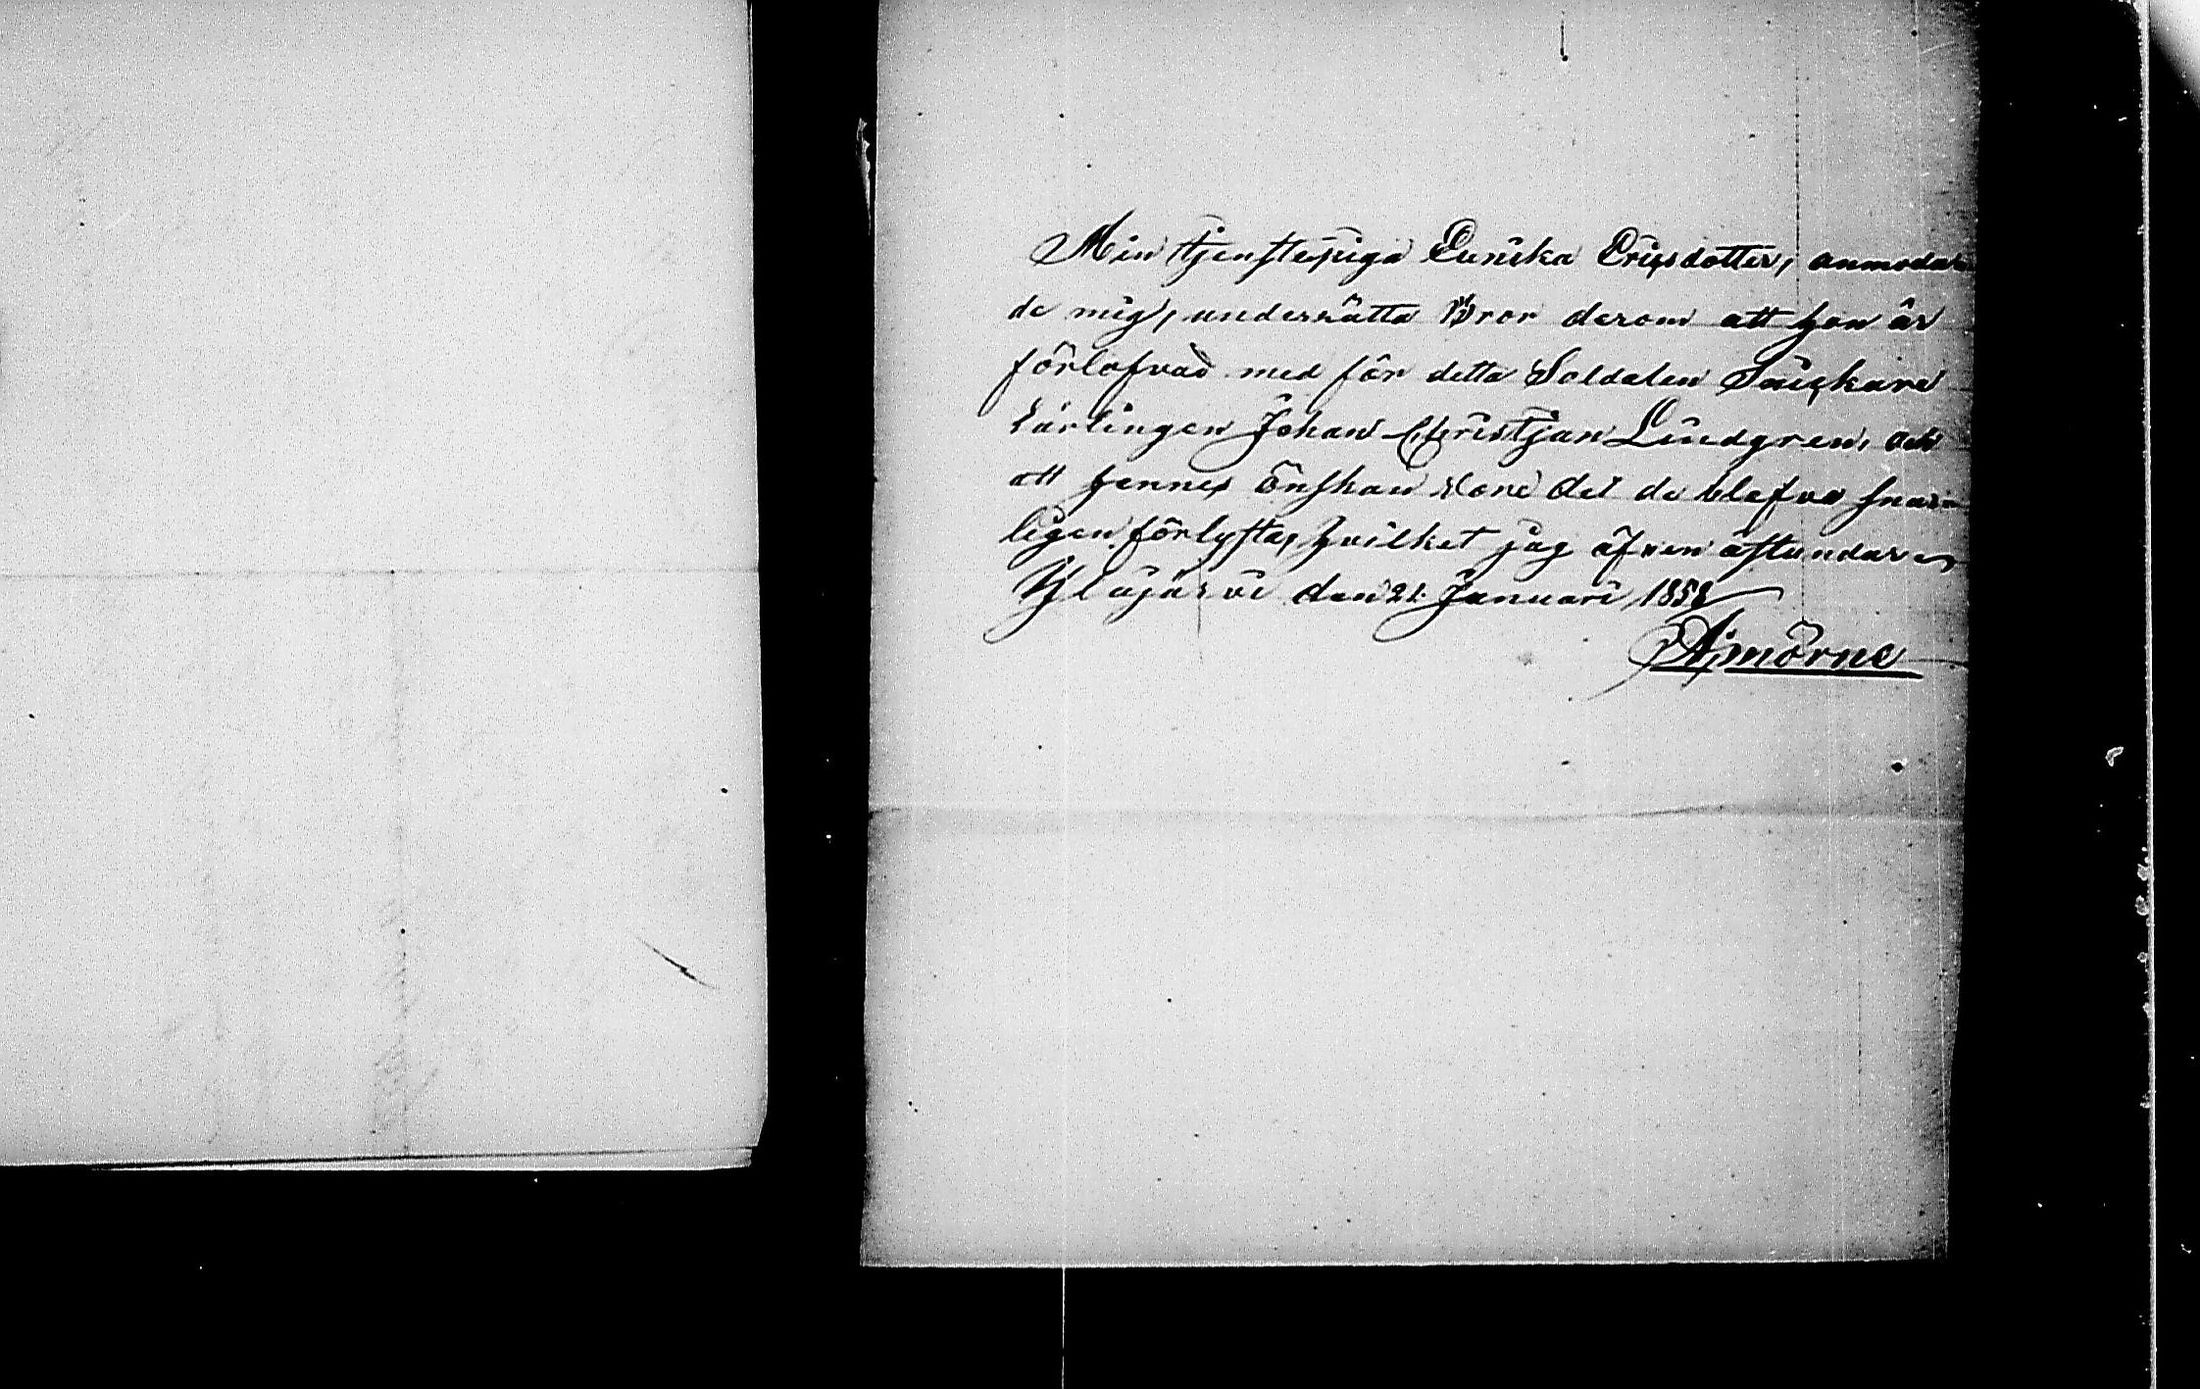 Min tjenstepiga Eunika Ericsdotter, anmoda-
de mig, underrätta Bror derom att hon är
förlofvad med för detta Soldaten Snickare
lärlingen Johan Christjan Lindgren, och
att hennes önskan vore det de blefvo snar-
ligen förlysta, hvilket jag äfven åstundar
Ylöjärvi den 21 Januari 1858
Amörne